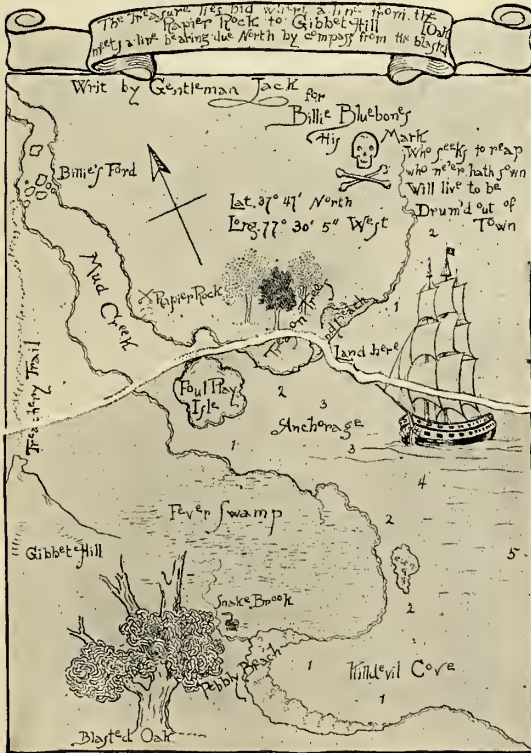 The Treasure lies hid where a line from the
Rapier Rock to Gibbet Hill
meets a line bearing due North by compass from the blasted Oak
Writ by Gentleman Jack
for
Billie Bluebones
His Mark
Who seeks to reap
who ne'er hath sown
Will live to be
Drum'd out of
Town
Billie's Ford
Lat. 37° 41' North
Long. 77° 30' 5" West
2
Mud Creek
Rapier Rock
Tree
1
Land here
Treachery Trail
Foul Play
Isle
2
3
Anchorage
1
3
4
Fever Swamp
2
5
Gibbet Hill
Snake Brook
2
Pebbly Beach
1
Killdevil Cove
1
Blasted Oak